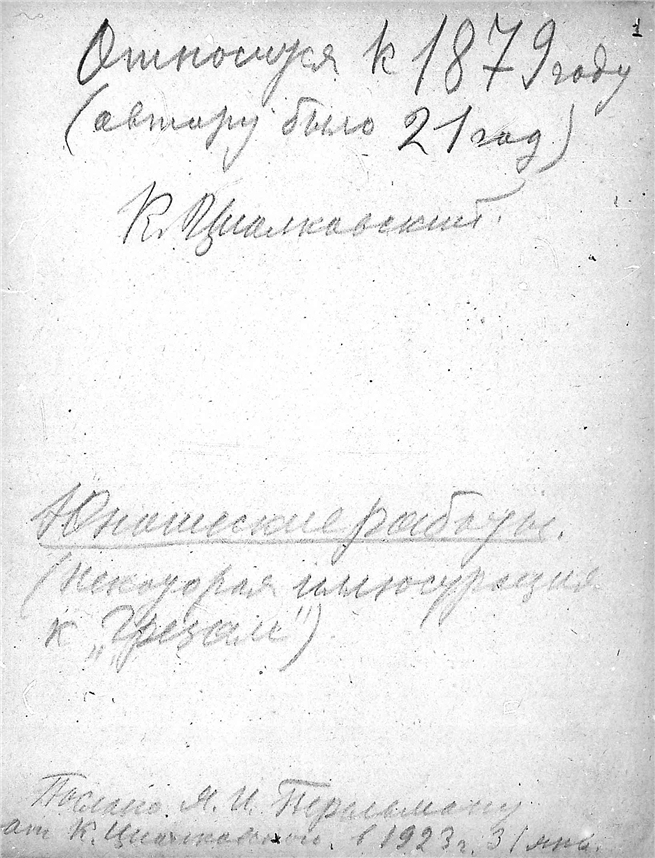 1
Относится к 1879 году
(автору было 21 год)
К. Циолковский.
Юношеские работы.
(Некоторая иллюстрация
к „Грезам“)
Послано Я. И. Перельману
от К. Циолковского. в 1923 г. 31 янв.